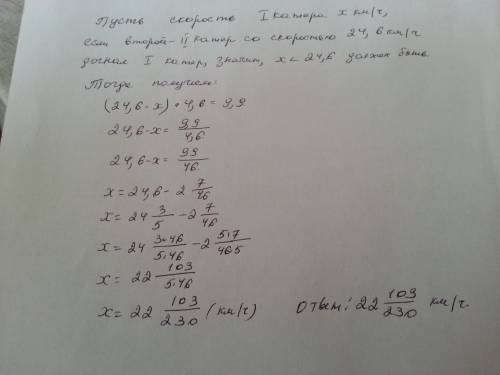 Пусть скорость I катера x км/ч,
если второй – II катер со скоростью 24,6 км/ч
догнал I катер, значит, x < 24,6 должен быть
Тогда получаем:
(24,6 - x) • 4,6 = 9,9
24,6 - x = 9,9/4,6
24,6 - x = 99/46
x = 24,6 - 2 7/46
x = 24 3/5 - 2 7/46
x = 24 3•46/5•46 - 2 5•7/46•5
x = 22 103/5•46
x = 22 103/230 (км/ч) Ответ: 22 103/230 км/ч.